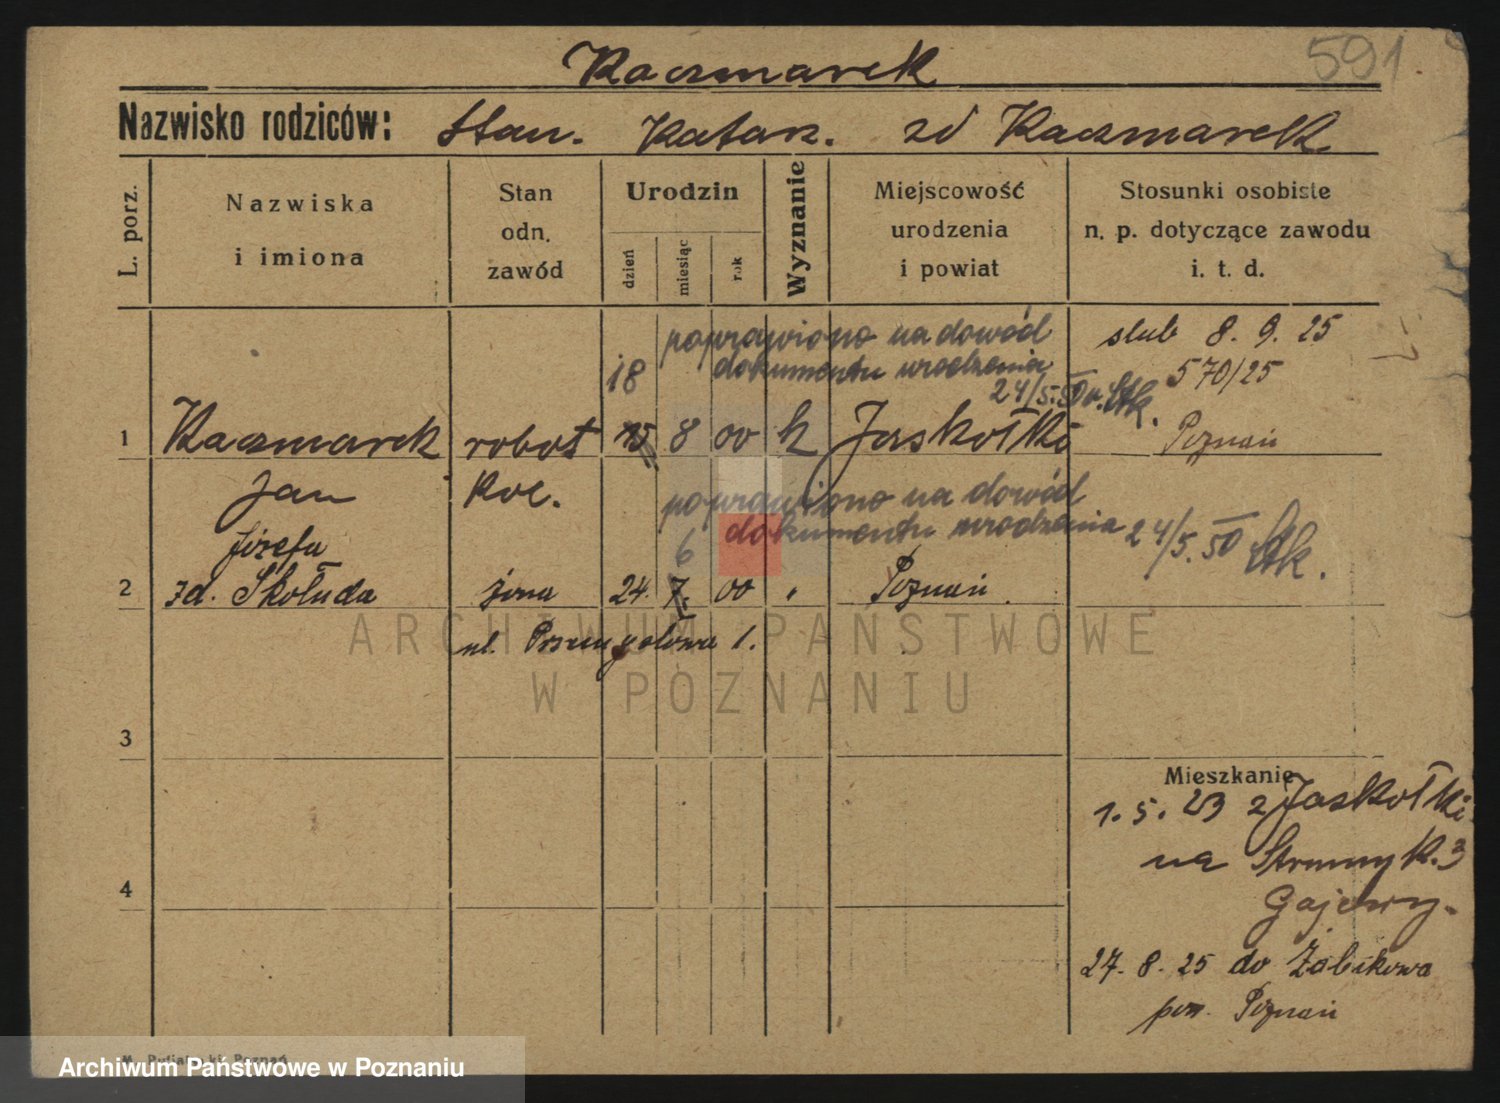 Kaczmarek 591
Nazwisko rodziców: Stan. Katarz. zd Kaczmarek
L. porz.
Nazwiska
i imiona
Stan
odn.
zawód
Urodzin
dzień
miesiąc
rok
Wyznanie
Miejscowość
urodzenia
i powiat
Stosunki osobiste
n. p. dotyczące zawodu
i. t. d.
poprawiono na dowód
dokumentu urodzenia
24/5.50 r.
ślub 8. 9. 25
570/25
Poznań
18
1 Kaczmarek robot 15 8 00 k Jaskołki
Jan
poprawiono na dowód
dokumentu urodzenia 24/5.50
6
Józefa
2 zd. Skołuda żona 24. 7. 00 " Poznań
ul. 1.
3
4
Mieszkanie
1. 5. 23 z Jaskołki
na Strumyk. 3
Gajewy.
27. 8. 25 do Żabikowa
pow. Poznań
ARCHIWUM PAŃSTWOWE
W POZNANIU
Archiwum Państwowe w Poznaniu